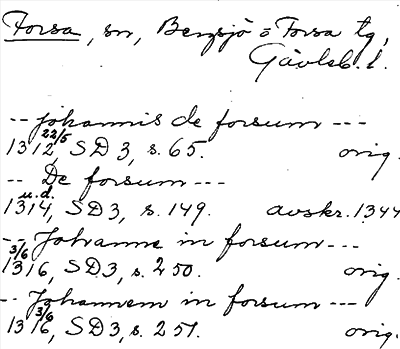 Forsa, sn, Bergsjö o Forsa tg,
Gävleb. l.
-- johannis de forsum ---
1312 22/5, SD 3, s. 65. orig.
-- De forsum ---
1314 u.d., SD 3, s. 149. avskr. 1344
-- Johanne in forsum ---
1316 3/6, SD 3, s. 250. orig.
-- Johannem in forsum ---
1316 3/6, SD 3, s. 251. orig.